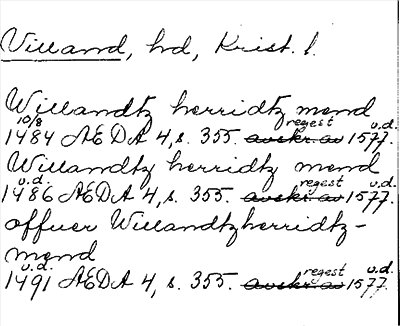 Villand, hd, Krist. l.
Willandtz herridtz mend
10/8 1484 ÆDA 4, s. 355. avskr. av regest u.d. 1577.
Willandtz herridtz mend
u.d. 1486 ÆDA 4, s. 355. avskr. av regest u.d. 1577.
offuer Willandtzherridtz-
mend
u.d. 1491 ÆDA 4, s. 355. avskr. av regest u.d. 1577.